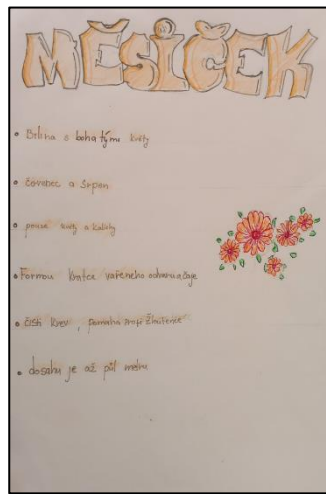 MĚSÍČEK
• Bilina s bohatými květy
• červenec a srpen
• pouze květy a kalichy
• Formou krátce vařeného odvaru a čaje
• čistí krev, pomáhá proti žloutence
• dosahuje až půl metru